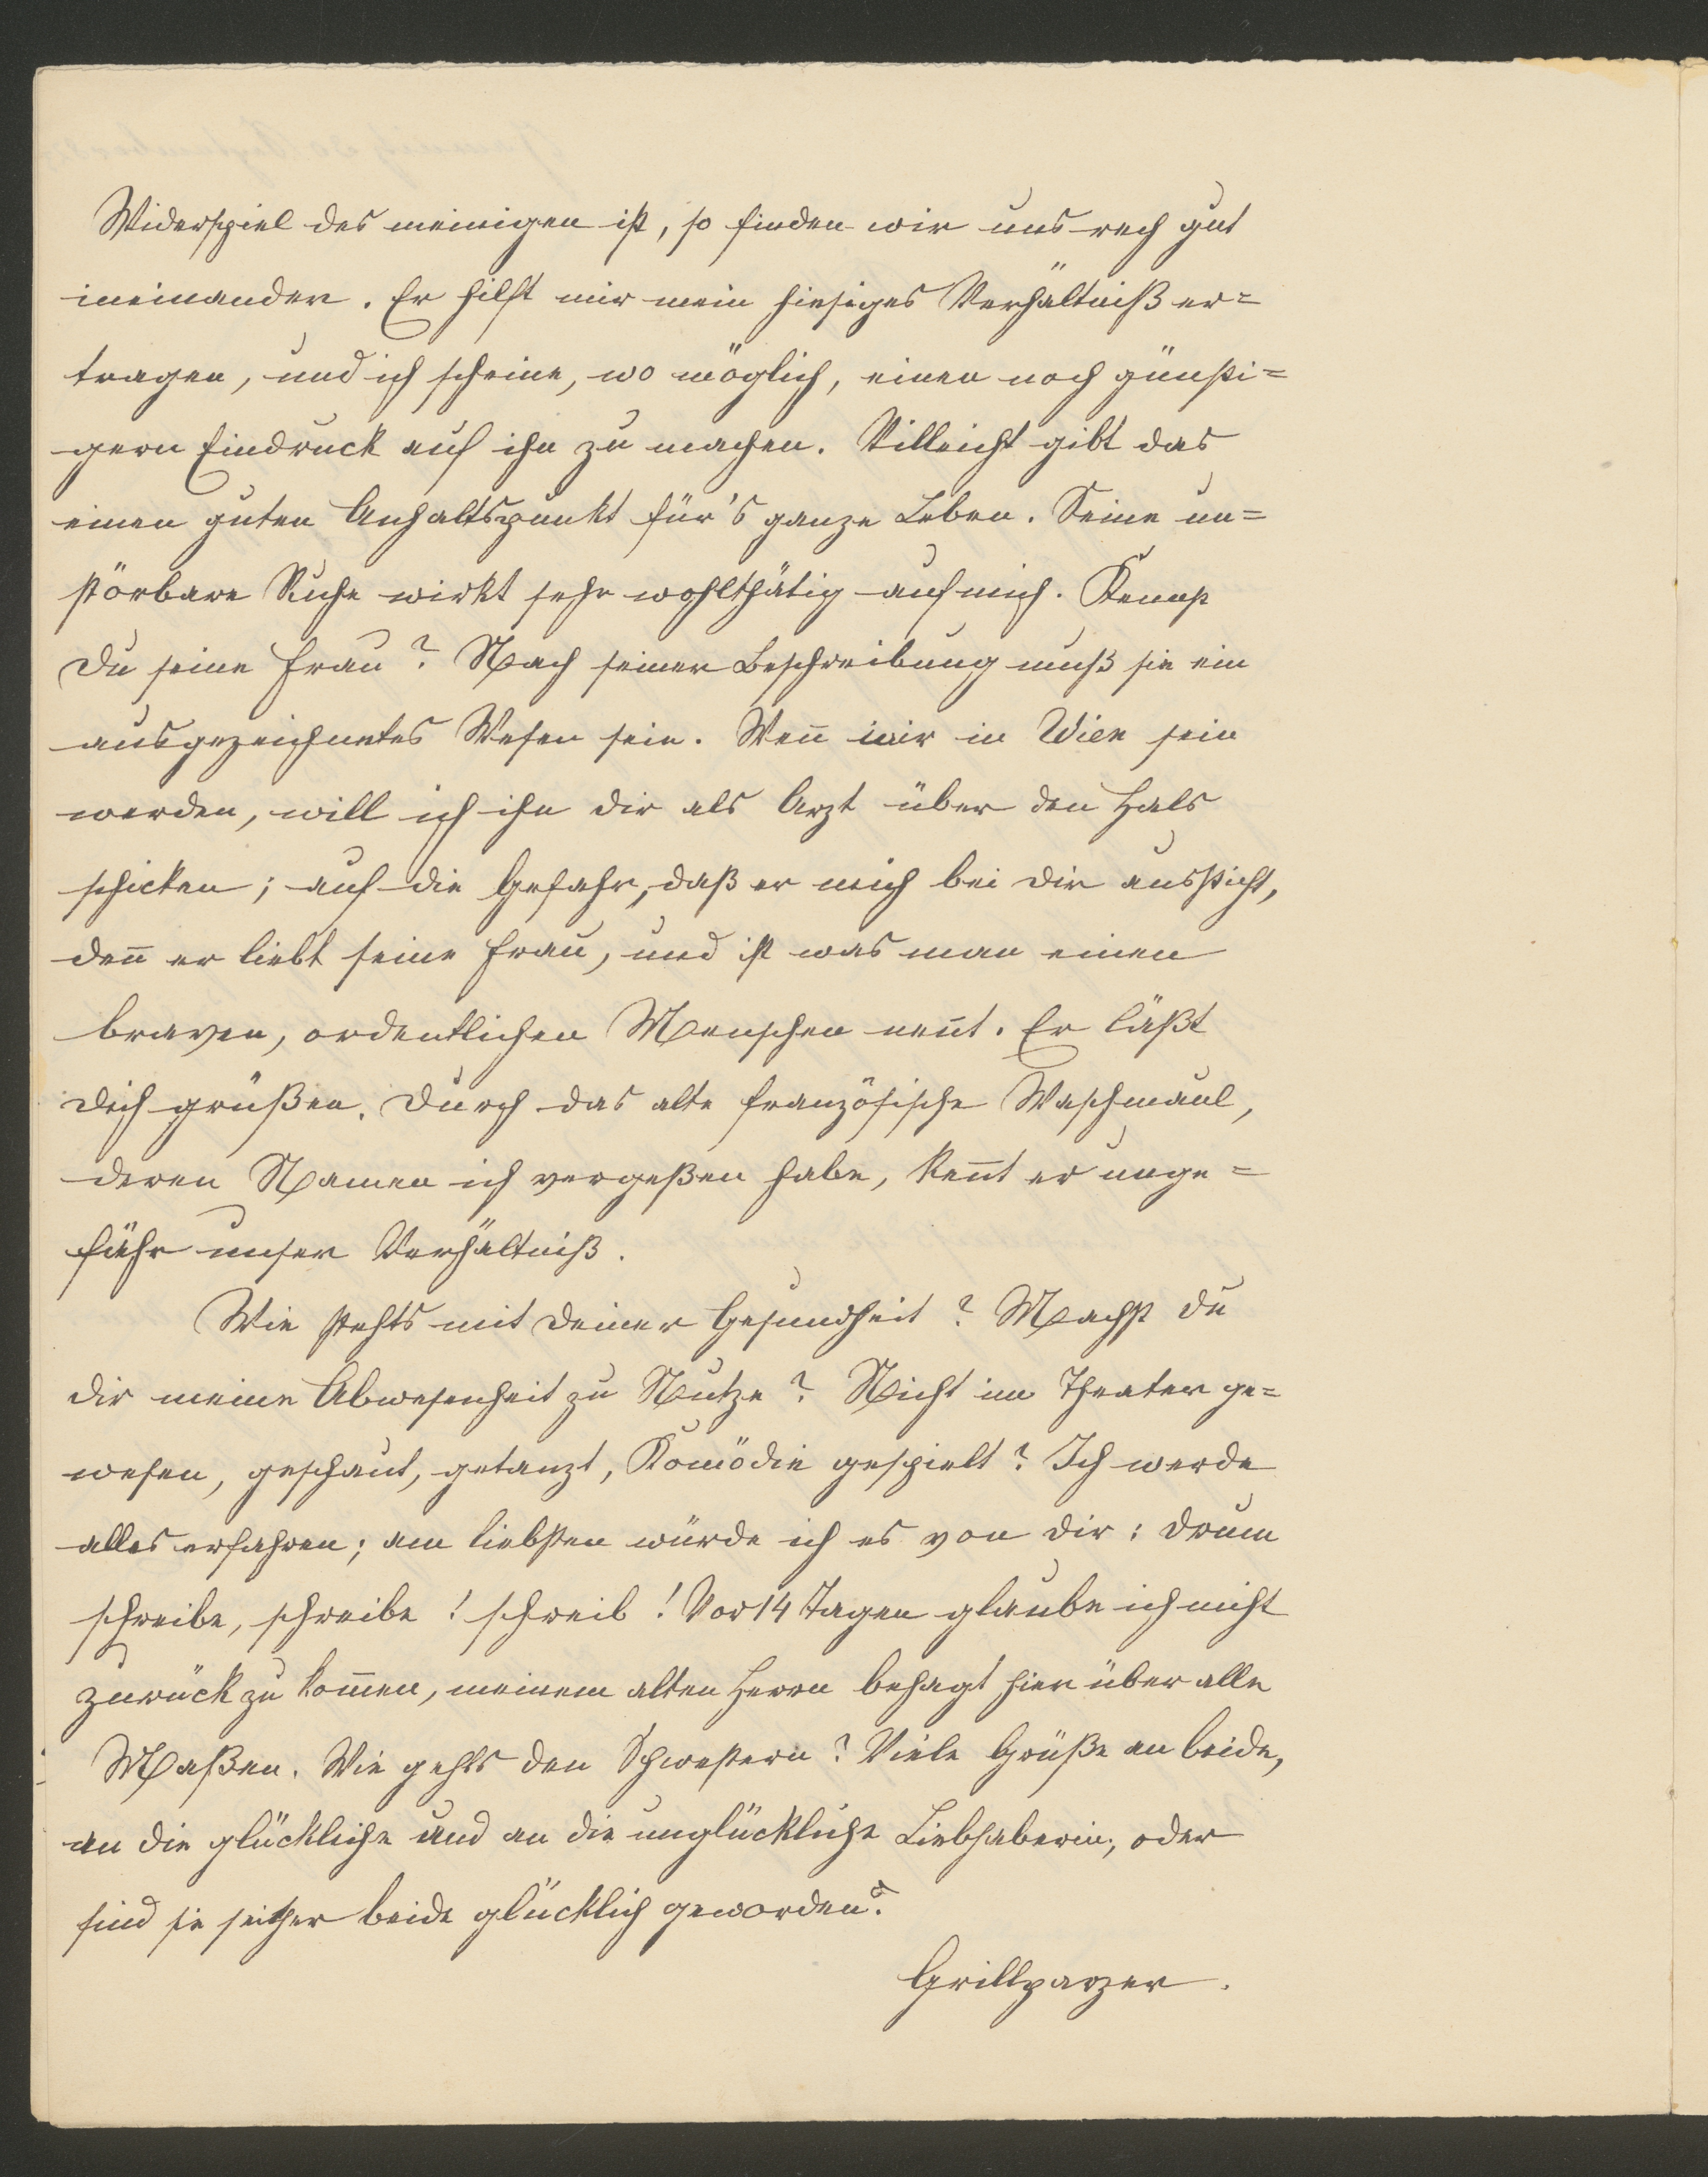 Widerspiel des meinigen ist, so finden wir uns rech gut
ineinander. Er hilft mir mein hiesiges Verhältniß er=
tragen, und ich scheine, wo möglich, einen noch günsti=
gern Eindruck auf ihn zu machen. Villeicht gibt das
einen guten Anhaltspunkt für's ganze Leben. Seine un=
störbare Ruhe wirkt sehr wohlthätig auf mich. Kennst
Du seine Frau? Nach seiner Beschreibung muß sie ein
ausgezeichnetes Wesen sein. Wen̄ wir in Wien sein
werden, will ich ihn dir als Arzt über den Hals
schicken; auf die Gefahr, daß er mich bei dir aussticht,
den̄ er liebt seine Frau, und ist was man einen
braven, ordentlichen Menschen nen̄t. Er läßt
dich grüßen. Durch das alte französische Waschmaul,
deren Namen ich vergeßen habe, ken̄t er unge=
fähr unser Verhältniß.
Wie stehts mit Deiner Gesundheit? Machst du
dir meine Abwesenheit zu Nutze? Nicht im Theater ge=
wesen, geschaut, getanzt, Komödie gespielt? Ich werde
alles erfahren; am liebsten würde ich es von dir: drum
schreibe, schreibe! schreib! Vor 14 Tagen glaube ich nicht
zurück zu kom̄en, meinem alten Herrn behagt hier über alle
Maßen. Wie gehts den Schwestern? Viele Grüße an beide,
an die glückliche und an die unglückliche Liebhaberin; oder
sind sie seither beide glücklich geworden?
Grillparzer.